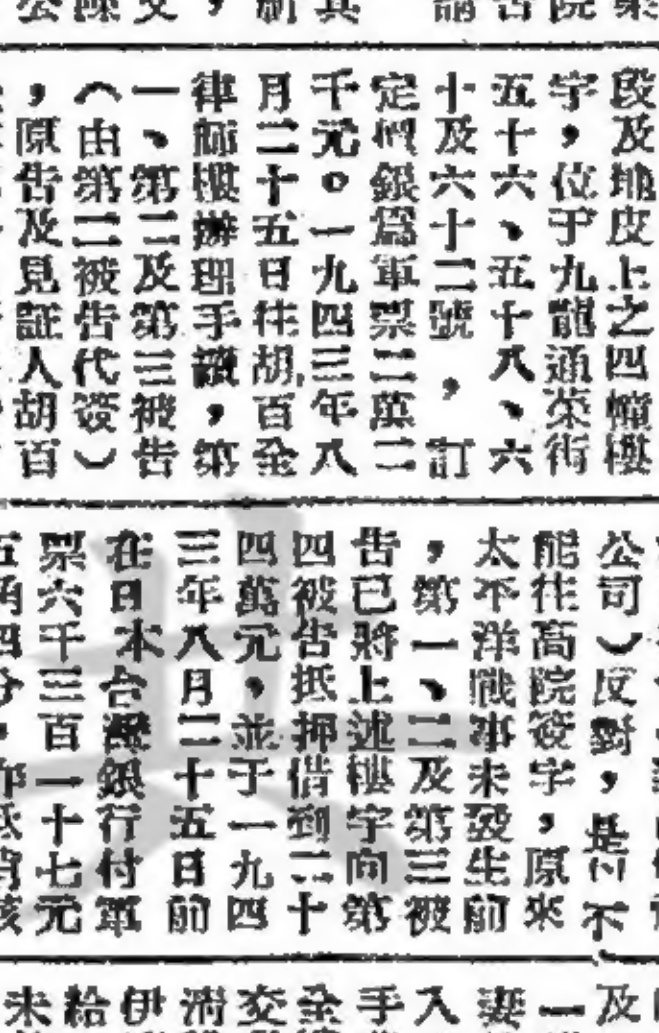 段及地皮上之四幢樓
宇，位于九龍通菜街
五十六、五十八、六
十及六十二號，訂
定價銀爲軍票二萬二
千元。一九四三年八
月二十五日往胡百全
律師樓辦理手續，第
一、第二及第三被告
（由第二被告代簽）
，原告及見証人胡百
公司）反對，是付不
能往高院簽字，原來
太不洋戰事未發生前
，第一、二及第三被
告已將上述樓宇向第
四被告抵押借到二十
四萬元，並于一九四
三年八月二十五日前
在日本台灣銀行付軍
票六千三百一十七元
及
一
妻
入
手
全
交
清
伊
給
未